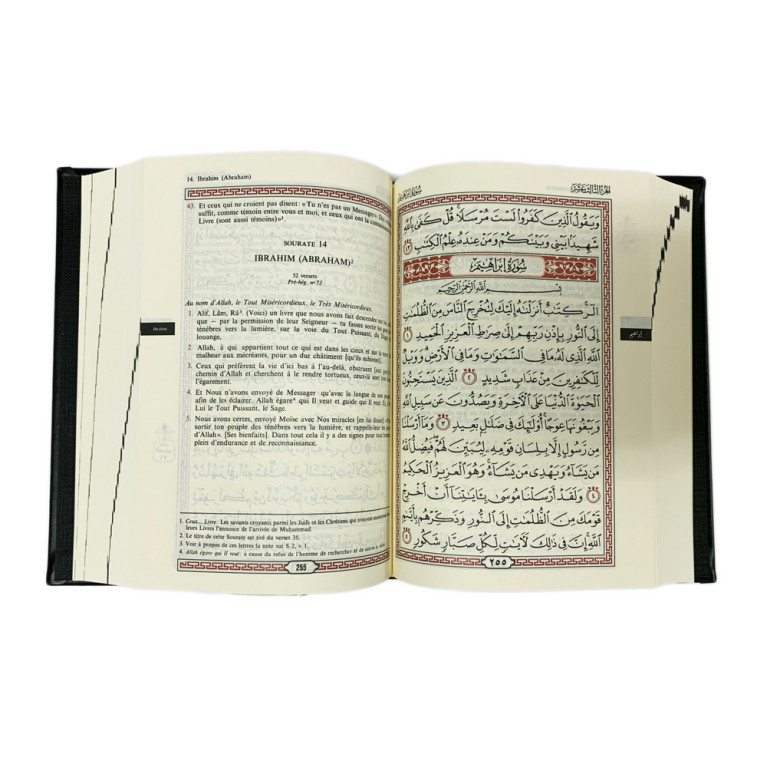 14. Ibrahim (Abraham)
43. Et ceux qui ne croient pas disent: «Tu n'es pas un Messager». Dis:
suffit, comme témoin entre vous et moi, et ceux qui ont la
Livre (sont aussi témoins)»¹.
SOURATE 14
IBRAHIM (ABRAHAM)²
52 versets
Pré-hég. n° 72
Au nom d'Allah, le Tout Miséricordieux, le Très Miséricordieux.
1. Alif, Lâm, Râ³. (Voici) un livre que nous avons fait descendre sur
que — par la permission de leur Seigneur — tu fasses sortir les gens
ténèbres vers la lumière, sur la voie du Tout Puissant, du
louange,
2. Allah, à qui appartient tout ce qui est dans les cieux et sur la
malheur aux mécréants, pour un dur châtiment [qu'ils subiront],
3. Ceux qui préfèrent la vie d'ici bas à l'au-delà, obstruent [aux
chemin d'Allah et cherchent à le rendre tortueux, ceux-là sont
l'égarement.
4. Et Nous n'avons envoyé de Messager qu'avec la langue de son
afin de les éclairer. Allah égare⁴ qui Il veut et guide qui Il veut.
Lui le Tout Puissant, le Sage.
5. Nous avons certes, envoyé Moïse avec Nos miracles [en lui disant]:
sortir ton peuple des ténèbres vers la lumière, et rappelle-leur
d'Allah». [Ses bienfaits]. Dans tout cela il y a des signes pour tout
plein d'endurance et de reconnaissance.
1. Ceux... Livre: Les savants croyants parmi les Juifs et les Chrétiens qui
leurs Livres l'annonce de l'arrivée de Muḥammad.
2. Le titre de cette Sourate est tiré du verset 35.
3. Voir à propos de ces lettres la note sur S.2, v.1.
4. Allah égare qui Il veut: à cause du refus de l'homme de rechercher et de suivre
255
Ibrahim
الجزء الثالث عشر
سورة إبراهيم
وَيَقُولُ الَّذِينَ كَفَرُوا لَسْتَ مُرْسَلًا قُلْ كَفَى بِاللَّهِ
شَهِيدًا بَيْنِي وَبَيْنَكُمْ وَمَنْ عِندَهُ عِلْمُ الْكِتَابِ ٤٣
سُورَةُ إِبْرَاهِيمَ
بِسْمِ اللَّهِ الرَّحْمَٰنِ الرَّحِيمِ
الٓر كِتَابٌ أَنزَلْنَاهُ إِلَيْكَ لِتُخْرِجَ النَّاسَ مِنَ الظُّلُمَاتِ
إِلَى النُّورِ بِإِذْنِ رَبِّهِمْ إِلَى صِرَاطِ الْعَزِيزِ الْحَمِيدِ ١
اللَّهِ الَّذِي لَهُ مَا فِي السَّمَاوَاتِ وَمَا فِي الْأَرْضِ وَوَيْلٌ
لِّلْكَافِرِينَ مِنْ عَذَابٍ شَدِيدٍ ٢ الَّذِينَ يَسْتَحِبُّونَ
الْحَيَاةَ الدُّنْيَا عَلَى الْآخِرَةِ وَيَصُدُّونَ عَن سَبِيلِ اللَّهِ
وَيَبْغُونَهَا عِوَجًا أُولَٰئِكَ فِي ضَلَالٍ بَعِيدٍ ٣ وَمَا أَرْسَلْنَا
مِن رَّسُولٍ إِلَّا بِلِسَانِ قَوْمِهِ لِيُبَيِّنَ لَهُمْ فَيُضِلُّ اللَّهُ
مَن يَشَاءُ وَيَهْدِي مَن يَشَاءُ وَهُوَ الْعَزِيزُ الْحَكِيمُ
٤ وَلَقَدْ أَرْسَلْنَا مُوسَى بِآيَاتِنَا أَنْ أَخْرِجْ
قَوْمَكَ مِنَ الظُّلُمَاتِ إِلَى النُّورِ وَذَكِّرْهُم بِأَيَّامِ
اللَّهِ إِنَّ فِي ذَٰلِكَ لَآيَاتٍ لِّكُلِّ صَبَّارٍ شَكُورٍ ٥
٢٥٥
إبراهيم